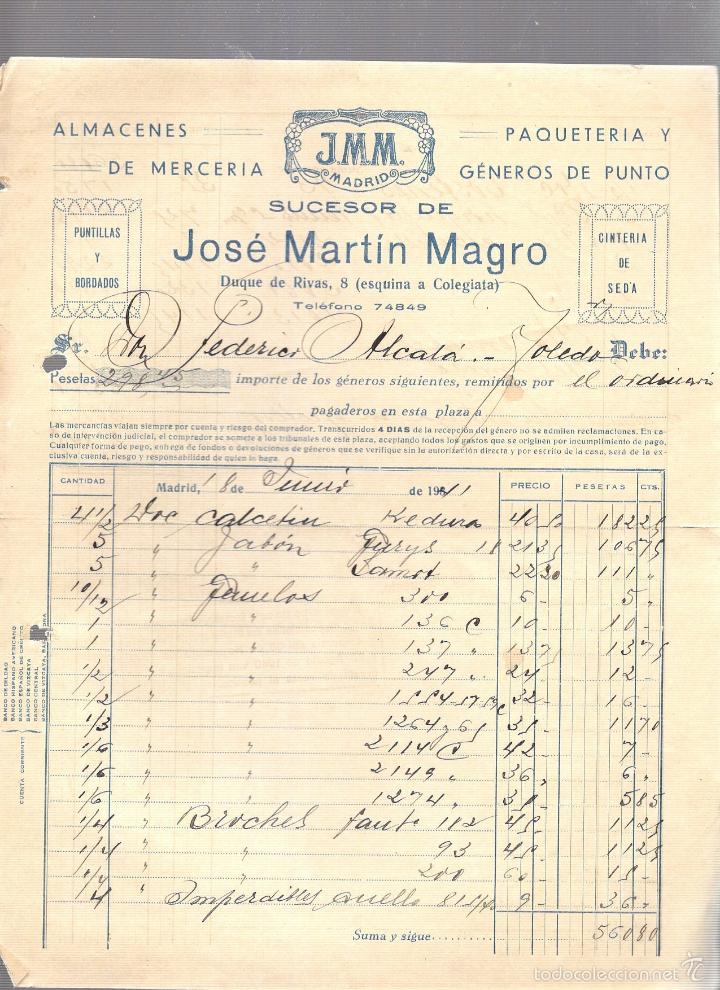 ALMACENES DE MERCERIA
J.M.M.
MADRID
PAQUETERIA Y GÉNEROS DE PUNTO
SUCESOR DE
José Martín Magro
PUNTILLAS Y BORDADOS
CINTERIA DE SEDA
Duque de Rivas, 8 (esquina a Colegiata)
Teléfono 74849
Sr. Don Federico Alcalá.- Toledo Debe:
Pesetas importe de los géneros siguientes, remitidos por el ordinario
pagaderos en esta plaza a
Las mercancías viajan siempre por cuenta y riesgo del comprador. Transcurridos 4 DIAS de la recepción del género no se admiten reclamaciones. En ca-
so de intervención judicial, el comprador se somete a los tribunales de esta plaza, aceptando todos los gastos que se originen por incumplimiento de pago.
Cualquier forma de pago, entrega de fondos o devoluciones de géneros que se verifique sin la autorización directa y por escrito de la casa, será de la ex-
clusiva cuenta, riesgo y responsabilidad de quien lo haga.
CANTIDAD PRECIO PESETAS CTS.
Madrid, 18 de Junio de 1941
4 1/2 Doc calcetin 40 50 182 25
5 " Jabón 18 21 35 106 75
5 " " 22 20 111 "
10/12 " Pañuelos 300 6 - 5 "
1 " " 136 C 10 - 10 -
1 " " 137 " 13 75 13 75
1/2 " " 247 " 24 - 12 -
1/2 " " 32 - 16 -
1/3 " " 35 - 11 70
1/6 " " 2114 C 42 - 7 -
1/6 " " 2149 " 36 " 6 "
1/6 " " 1274 " 35 - 5 85
1/4 " Broches 112 45 - 11 25
1/4 " " 93 45 - 11 25
1/4 " " 200 60 - 15 -
4 " Imperdibles 9 - 36 "
Suma y sigue 560 80
CUENTA CORRIENTE
BANCO DE BILBAO
BANCO HISPANO AMERICANO
BANCO ESPAÑOL DE CRÉDITO
BANCO DE VIZCAYA
BANCO CENTRAL
BANCO DE VIZCAYA,
todocoleccion.net